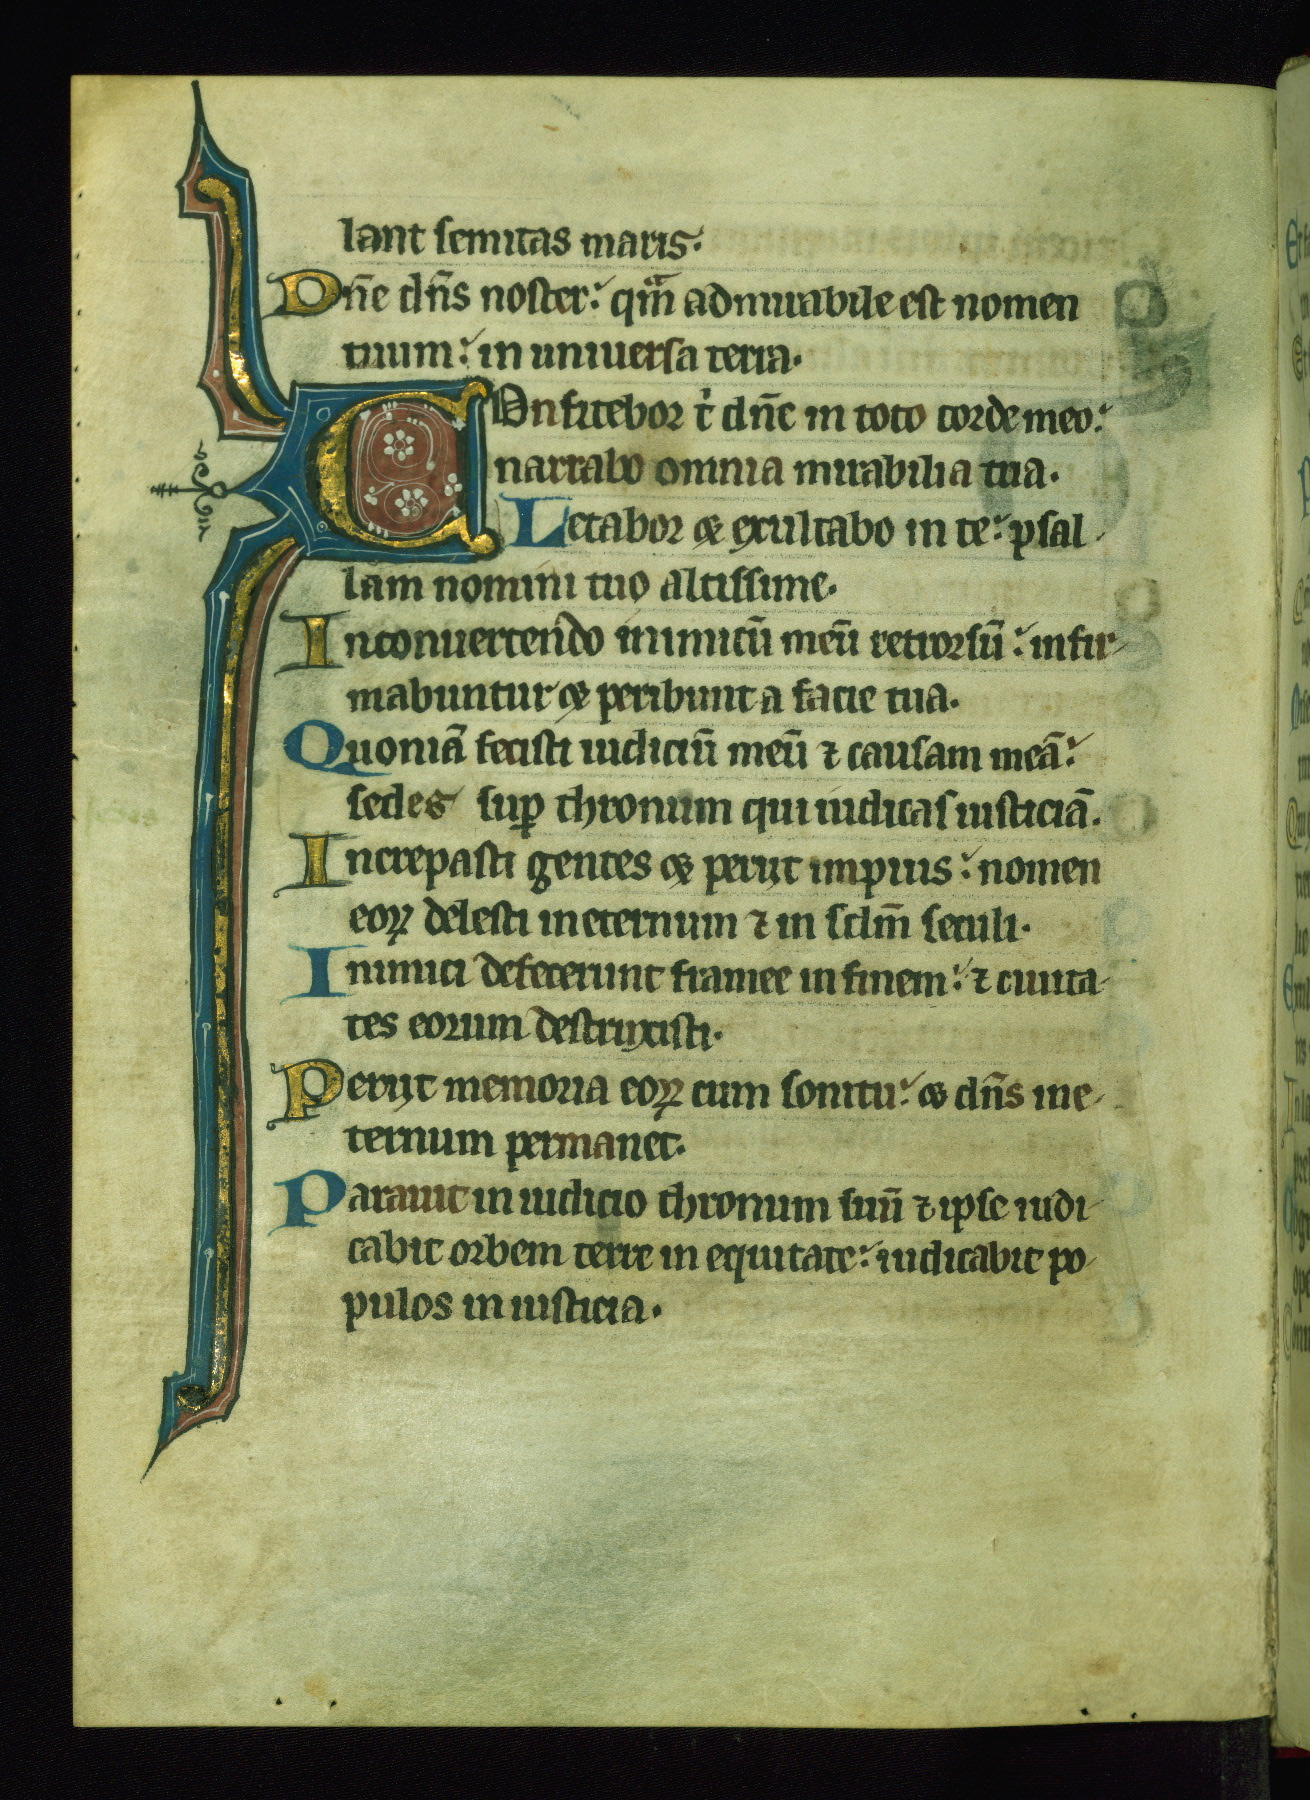 lant semitas maris.
Dn̄e dn̄s noster: qm̄ admirabile est nomen
tuum: in uniuersa terra.
COnfitebor t̉ dn̄e in toto corde meo:
narrabo omnia mirabilia tua.
Letabor & exultabo in te: psal
lam nomini tuo altissime.
Inconuertendo inimicū meū retrorsū: infir
mabuntur & peribunt a facie tua.
Quoniā fecisti iudiciū meū ⁊ causam meā:
sedes sup̄ thronum qui iudicas iusticiā.
Increpasti gentes & perijt impius: nomen
eoꝝ delesti in eternum ⁊ in sclm̄ seculi.
Inimici defecerunt framee in finem: ⁊ ciuita
tes eorum destruxisti.
Perijt memoria eoꝝ cum sonitu: & dn̄s ine
ternum permanet.
Parauit in iudicio thronum suū ⁊ ipse iudi
cabit orbem terre in equitate: iudicabit po
pulos in iusticia.